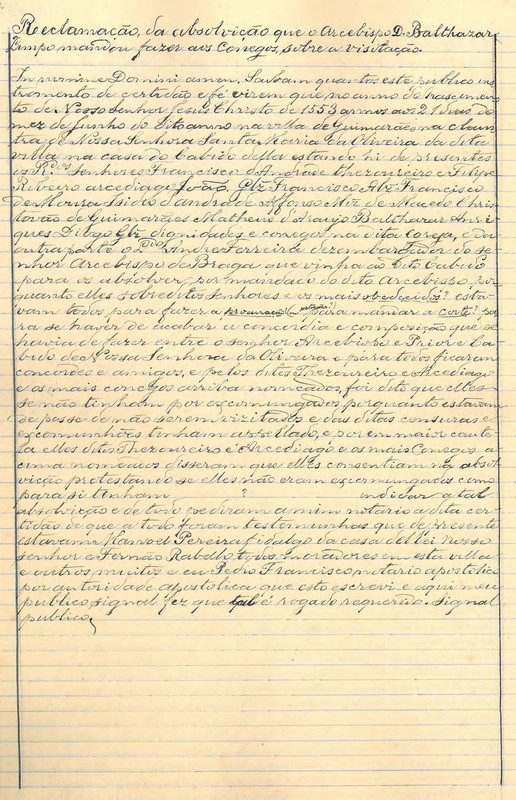 Reclamação, da absolvição que o Arcebispo D. Balthazar
Limpo mandou fazer aos Conegos, sobre a visitação.
In nomine Domini amen. Saibam quantos este publico ins
tromento de certidão e fé virem que no anno do nascimen
to de Nosso Senhor Jesus Christo de 1553 annos aos 21 dias do
mez de junho do dito anno na villa de Guimarães na claus
tra de Nossa Senhora Santa Maria da Oliveira da dita
villa na casa do Cabido della estando hi de presentes
os R.dos Senhores Francisco d'Andrade thezoureiro e Filipe
Ribeiro arcediago João Glz Francisco Alz Francisco
de Moura Isidro d'andrade Affonso Miz de Macedo Chris
tovão de Guimarães Matheus d'Araujo Balthazar Anri
ques Diogo Glz dignidades e conegos na dita igreja, e da
outra parte o L.do Andre Ferreira dezembargador do se
nhor Arcebispo de Braga que vinha ao dito Cabido
para os absolver por mandado do dito Arcebispo por
quanto elles sobreditos senhores e os mais obedecidos? esta
vam todos para fazer a procuração para mandar a corte? pa
ra se haver de acabar a concordia e composição que se
havia de fazer entre o senhor Arcebispo e Prior e Ca
bido de Nossa Senhora da Oliveira e para todos ficarem
concordes e amigos, e pelos ditos Thezoureiro e Arcediago
e os mais conegos arriba nomeados, foi dito que elles
se não tinham por escomungados porquanto estavam
de posse de não serem vizitados e das ditas censuras e
escomunhões tinham apellado, e por em mais caute
la elles ditos Thezoureiro e Arcediago e os mais Conegos a
cima nomeados disseram que elles consentiam na absol
vição protestando se elles não eram escomungados como
para si tinham ? indicar a tal
absolvição e de todo pediram a mim notario a dita cer
tidão de que a todo foram testemunhas que de presente
estavam Manoel Pereira fidalgo da casa del rei nosso
senhor e Fernão Rabello todos moradores em esta villa
e outros muitos e eu Pedro Francisco notario apostolico
por autoridade apostolica que esto escrevi e aqui meu
publico signal fez que tal é rogado requerido. Signal
publico,